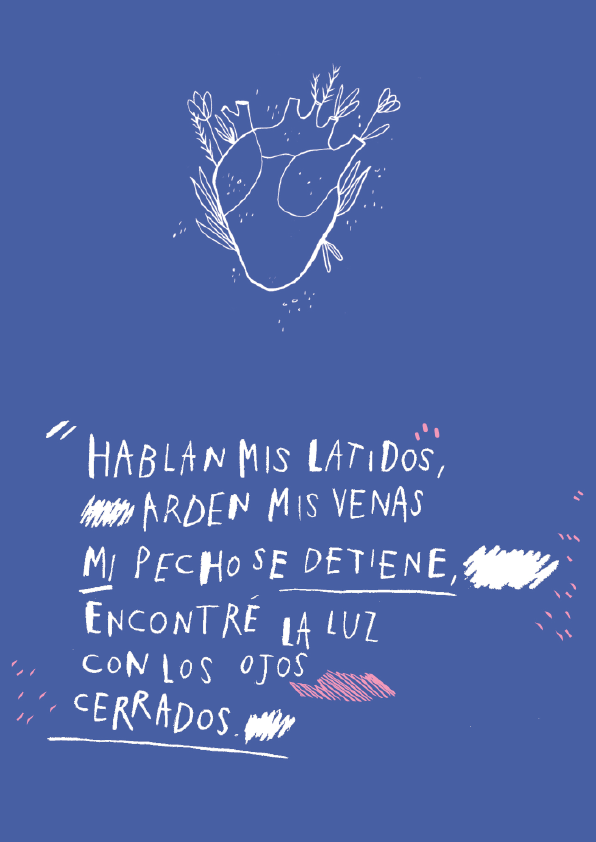 "HABLAN MIS LATIDOS,
ARDEN MIS VENAS
MI PECHO SE DETIENE,
ENCONTRÉ LA LUZ
CON LOS OJOS
CERRADOS.